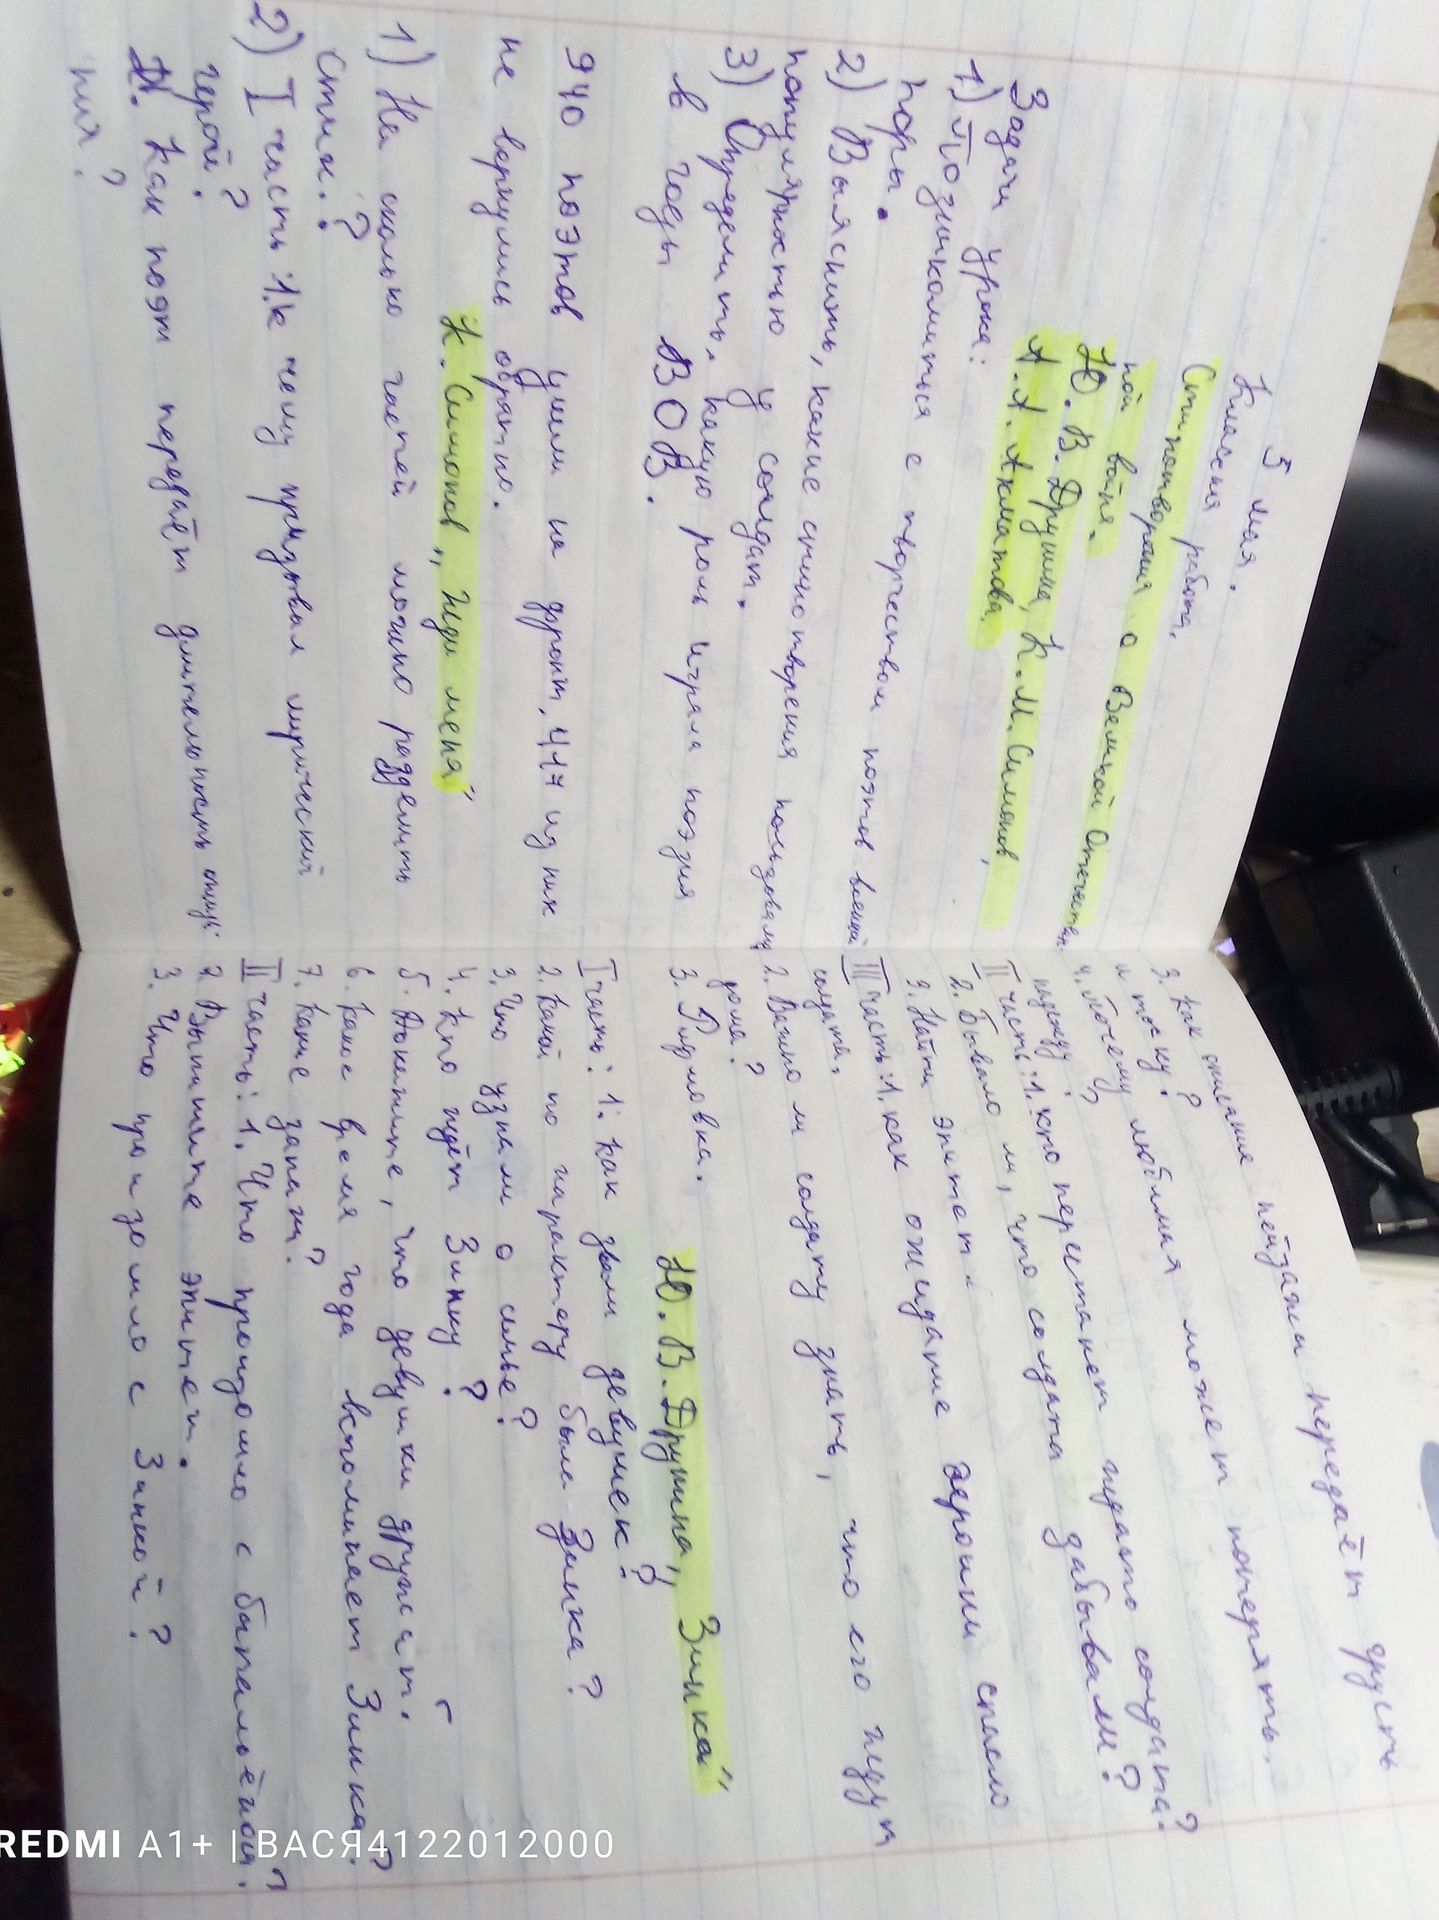 5 мая.
Класная работа.
Стихотворения о Великой Отечествен
ной войне.
Ю. В. Друнина, К. М. Симонов,
А. А. Ахматова.
Задачи урока:
1) Познакомиться с творчеством поэтов военной
поры.
2) Выяснить, какие стихотворения пользовались
популярностью у солдат.
3) Определить, какую роль играла поэзия
в годы ВОВ.
940 поэтов ушли на фронт, 417 из них
не вернулись обратно.
К. Симонов „Жди меня"
1) На сколько частей можно разделить
стих.?
2) I часть: 1. к чему призывал лирический
герой?
2. Как поэт передаёт длительность ожида-
ния?
3. Как описание пейзажи передаёт грусть
и тоску?
4. Почему любимая может потерять
надежду?
II часть: 1. кто перестанет ждать солдата?
2. Бывало ли, что солдата забывали?
3. Найти эпитет.
III часть: 1. как ожидание героини спасло
солдата.
2. Важно ли солдату знать, что его ждут
дома?
3. Рифмовка.
Ю. В. Друнина „Зинка"
I часть: 1. Как звали девушек?
2. Какой по характеру была Зинка?
3. Что узнали о семье?
4. Кто ждёт Зинку?
5. Докажите, что девушки дружат.
6. Какое время года вспоминает Зинка?
7. Какие запахи?
II часть: 1. Что произошло с батальёном?
2. Выпишите эпитет.
3. Что произошло с Зинкой?
REDMI A1+ | ВАСЯ4122012000